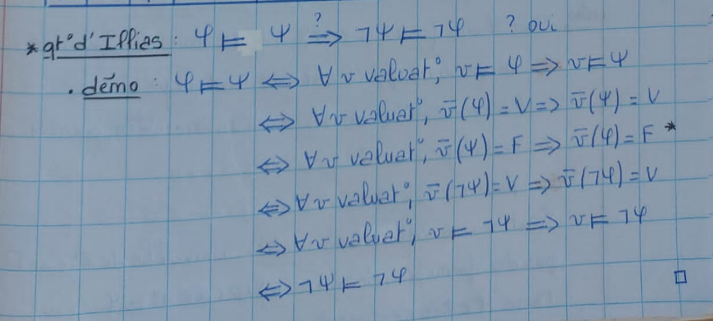 * qt° d'Iflias : φ ⊨ ψ ⇒? ¬ψ ⊨ ¬φ ? oui
. démo : φ ⊨ ψ ⇔ ∀ v valuat°, v ⊨ φ ⇒ v ⊨ ψ
⇔ ∀ v valuat°, v̄(φ) = V ⇒ v̄(ψ) = V
⇔ ∀ v valuat°, v̄(ψ) = F ⇒ v̄(φ) = F *
⇔ ∀ v valuat°, v̄(¬ψ) = V ⇒ v̄(¬φ) = V
⇔ ∀ v valuat°, v ⊨ ¬ψ ⇒ v ⊨ ¬φ
⇔ ¬ψ ⊨ ¬φ □